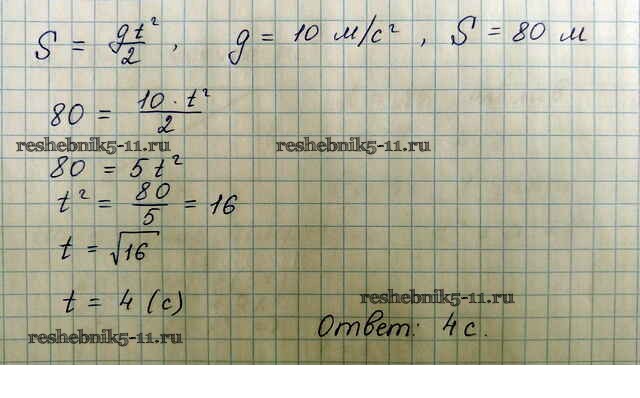 S = gt²/2, g = 10 м/с², S = 80 м
80 = 10 · t²/2
reshebnik5-11.ru reshebnik5-11.ru
80 = 5t²
t² = 80/5 = 16
t = √16
t = 4 (с)
reshebnik5-11.ru
Ответ: 4 с.
reshebnik5-11.ru